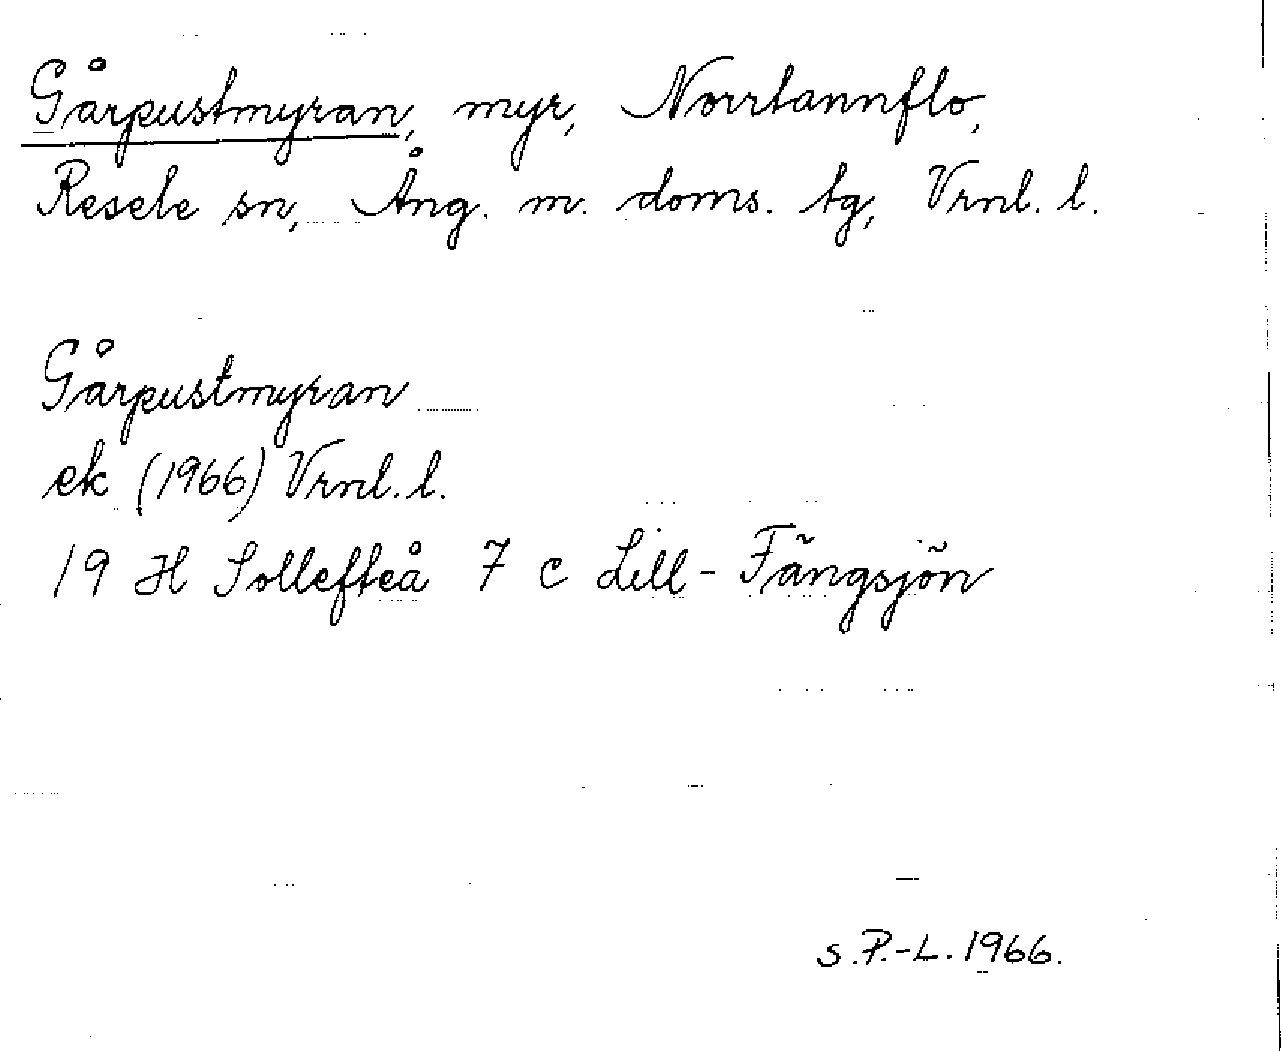 Gårpustmyran, myr, Norrtannflo,
Resele sn, Ång. m. doms. tg, Vrnl. l.
Gårpustmyran
ek (1966) Vrnl. l.
19 H Sollefteå 7 c Lill-Fängsjön
s. P.-L. 1966.